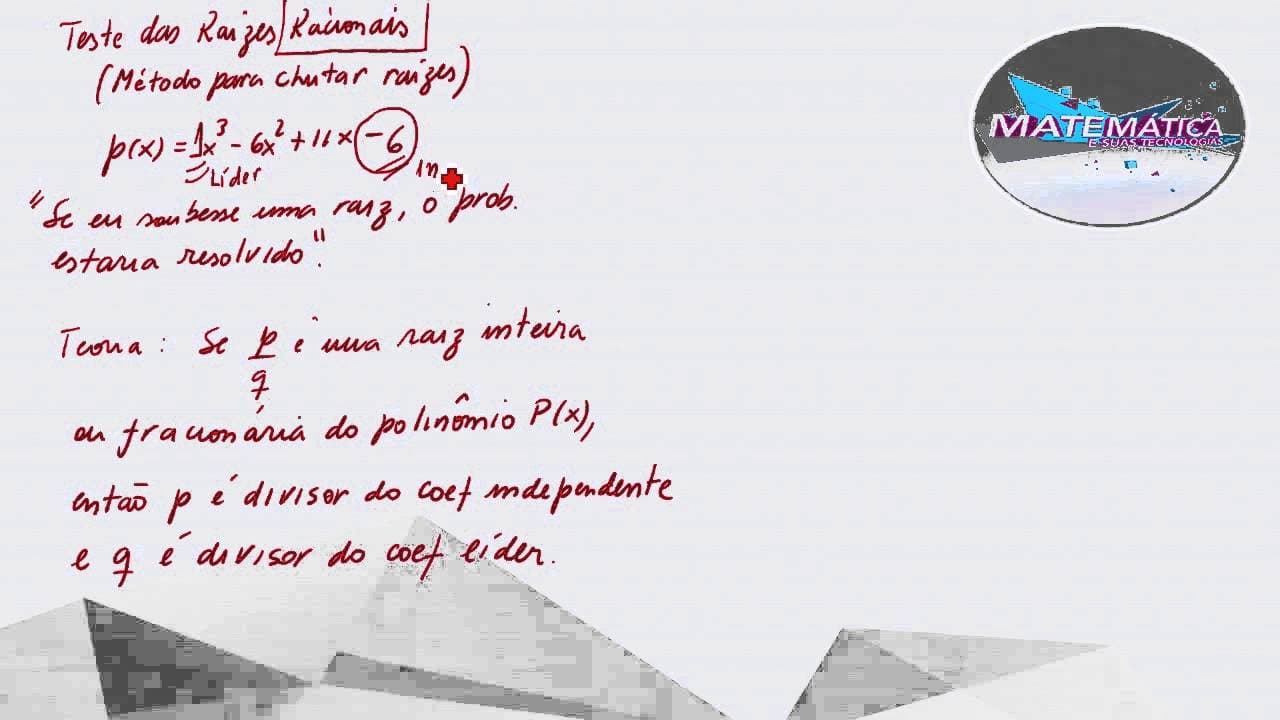 Teste das Raízes Racionais
(Método para chutar raízes)
p(x) = 1x³ - 6x² + 11x - 6
Líder in
"Se eu soubesse uma raiz, o prob.
estaria resolvido".
Teorema: Se p/q é uma raiz inteira
ou fracionária do polinômio P(x),
então p é divisor do coef independente
e q é divisor do coef líder.
MATEMÁTICA
E SUAS TECNOLOGIAS